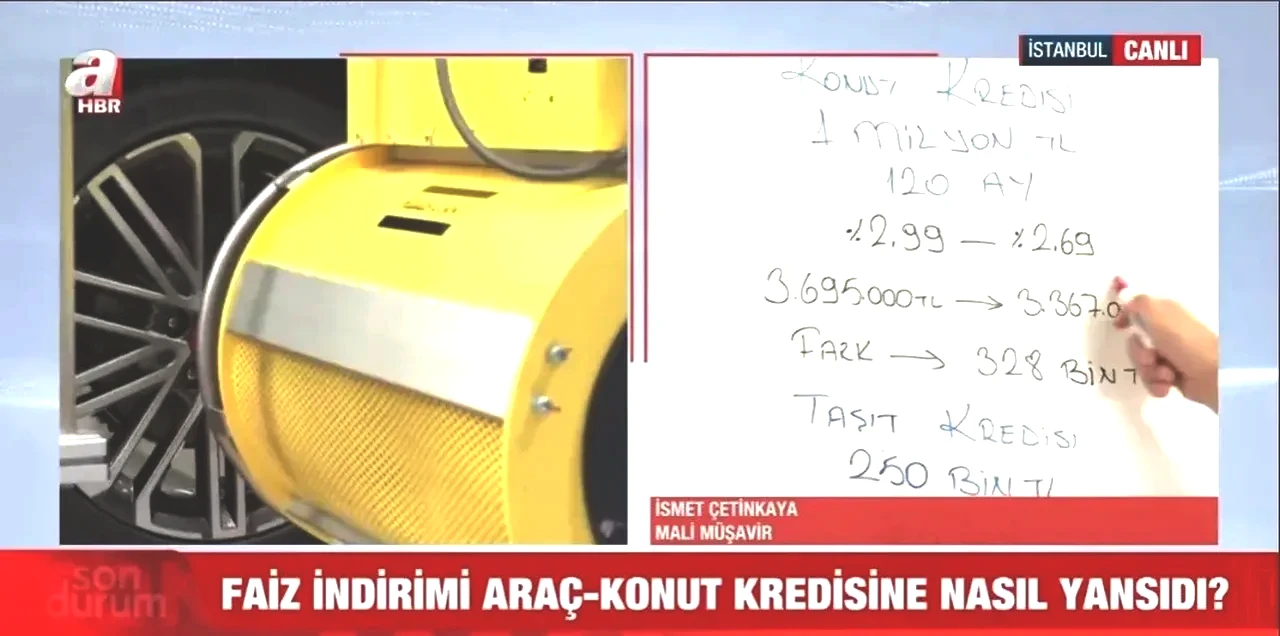 a
HBR
İSTANBUL CANLI
KONUT KREDİSİ
1 MİLYON TL
120 AY
%2.99 — %2.69
3.695.000TL → 3.367.0
FARK → 328 BİN T
TAŞIT KREDİSİ
250 BİN TL
İSMET ÇETİNKAYA
MALİ MÜŞAVİR
son
durum
FAİZ İNDİRİMİ ARAÇ-KONUT KREDİSİNE NASIL YANSIDI?